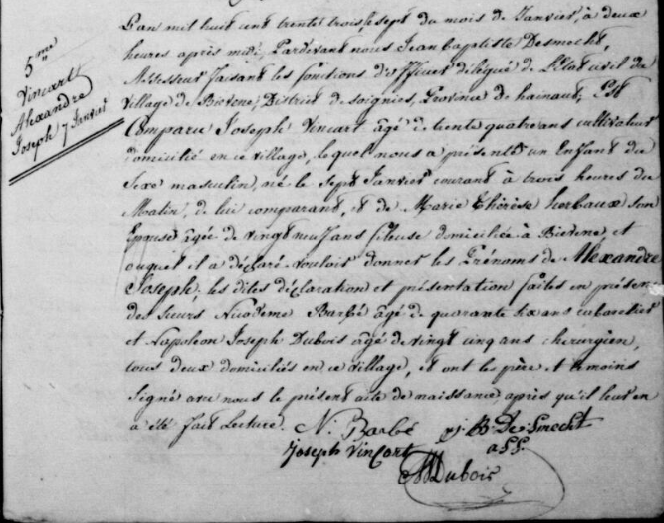 5me
Vincart
Alexandre
Joseph 7 Janvier
L'an mil huit cent trente trois, le sept du mois de Janvier, à deux
heures après midi, Pardevant nous Jean baptiste Desmecht,
Assesseur faisant les fonctions d'officier délégué de L'Etat civil du
Village de Bievene, District de soignies, Province de hainaut, Est
Comparu Joseph Vincart âgé de trente quatre ans cultivateur
domicilié en ce village, lequel nous a présenté un Enfant du
Sexe masculin, né le sept Janvier courant à trois heures du
Matin, de lui comparant, et de Marie Thérèse herbaux son
Epouse âgée de vingt neuf ans fileuse domiciliée à Bievene, et
auquel il a déclaré vouloir donner les Prénoms de Alexandre
Joseph, les dites déclaration et présentation faites en présence
des sieurs Barbé âgé de quarante six ans cabaretier
et Napoléon Joseph Dubois âgé de vingt cinq ans chirurgien,
tous deux domiciliés en ce village, et ont les père et témoins
signé avec nous le présent acte de naissance, après qu'il leur en
a été fait Lecture.
N. Barbé
J. B De Smecht
Joseph Vincart
ass.
Dubois